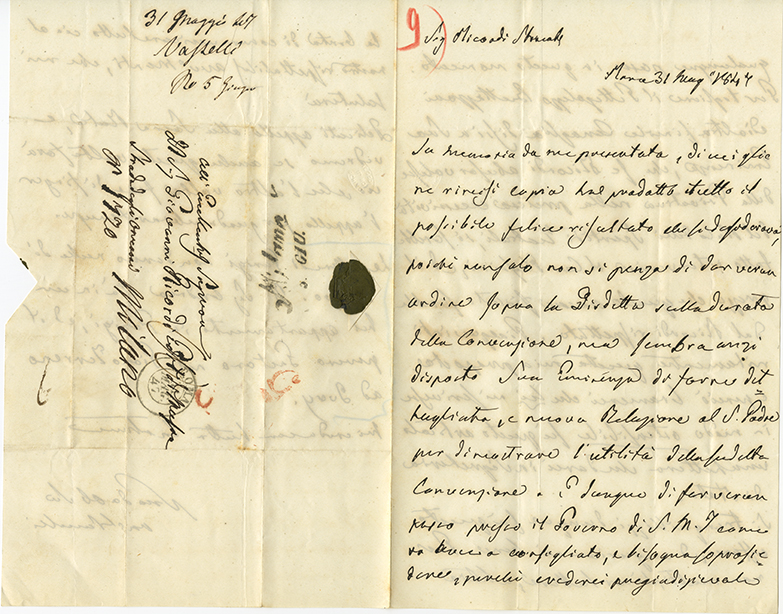 31 Maggio 1847
Vasselli
Ro 5 Giugno
All'
Al Sig Giovanni Ricordi
Milano
N 1720
9
Sig Ricordi Stimatis
Roma 31 Mag 1847
La memoria da me presentata, di cui glie
ne rimessi copia ha prodotto tutto il
possibile felice risultato che si desiderava
poiché non solo non si pensa di dar verun
ordine sopra la Disdetta sulla durata
della Convenzione, ma sembra anzi
disposto Sua Eminenza di farne det
tagliata, e nuova Relazione al S. Padre
per dimostrare l'utilità della sudetta
Convenzione. È dunque di far verun
passo presso il Governo di S. M. I come
consigliato, e bisogna soprasse
dere, perché crederei pregiudizievole